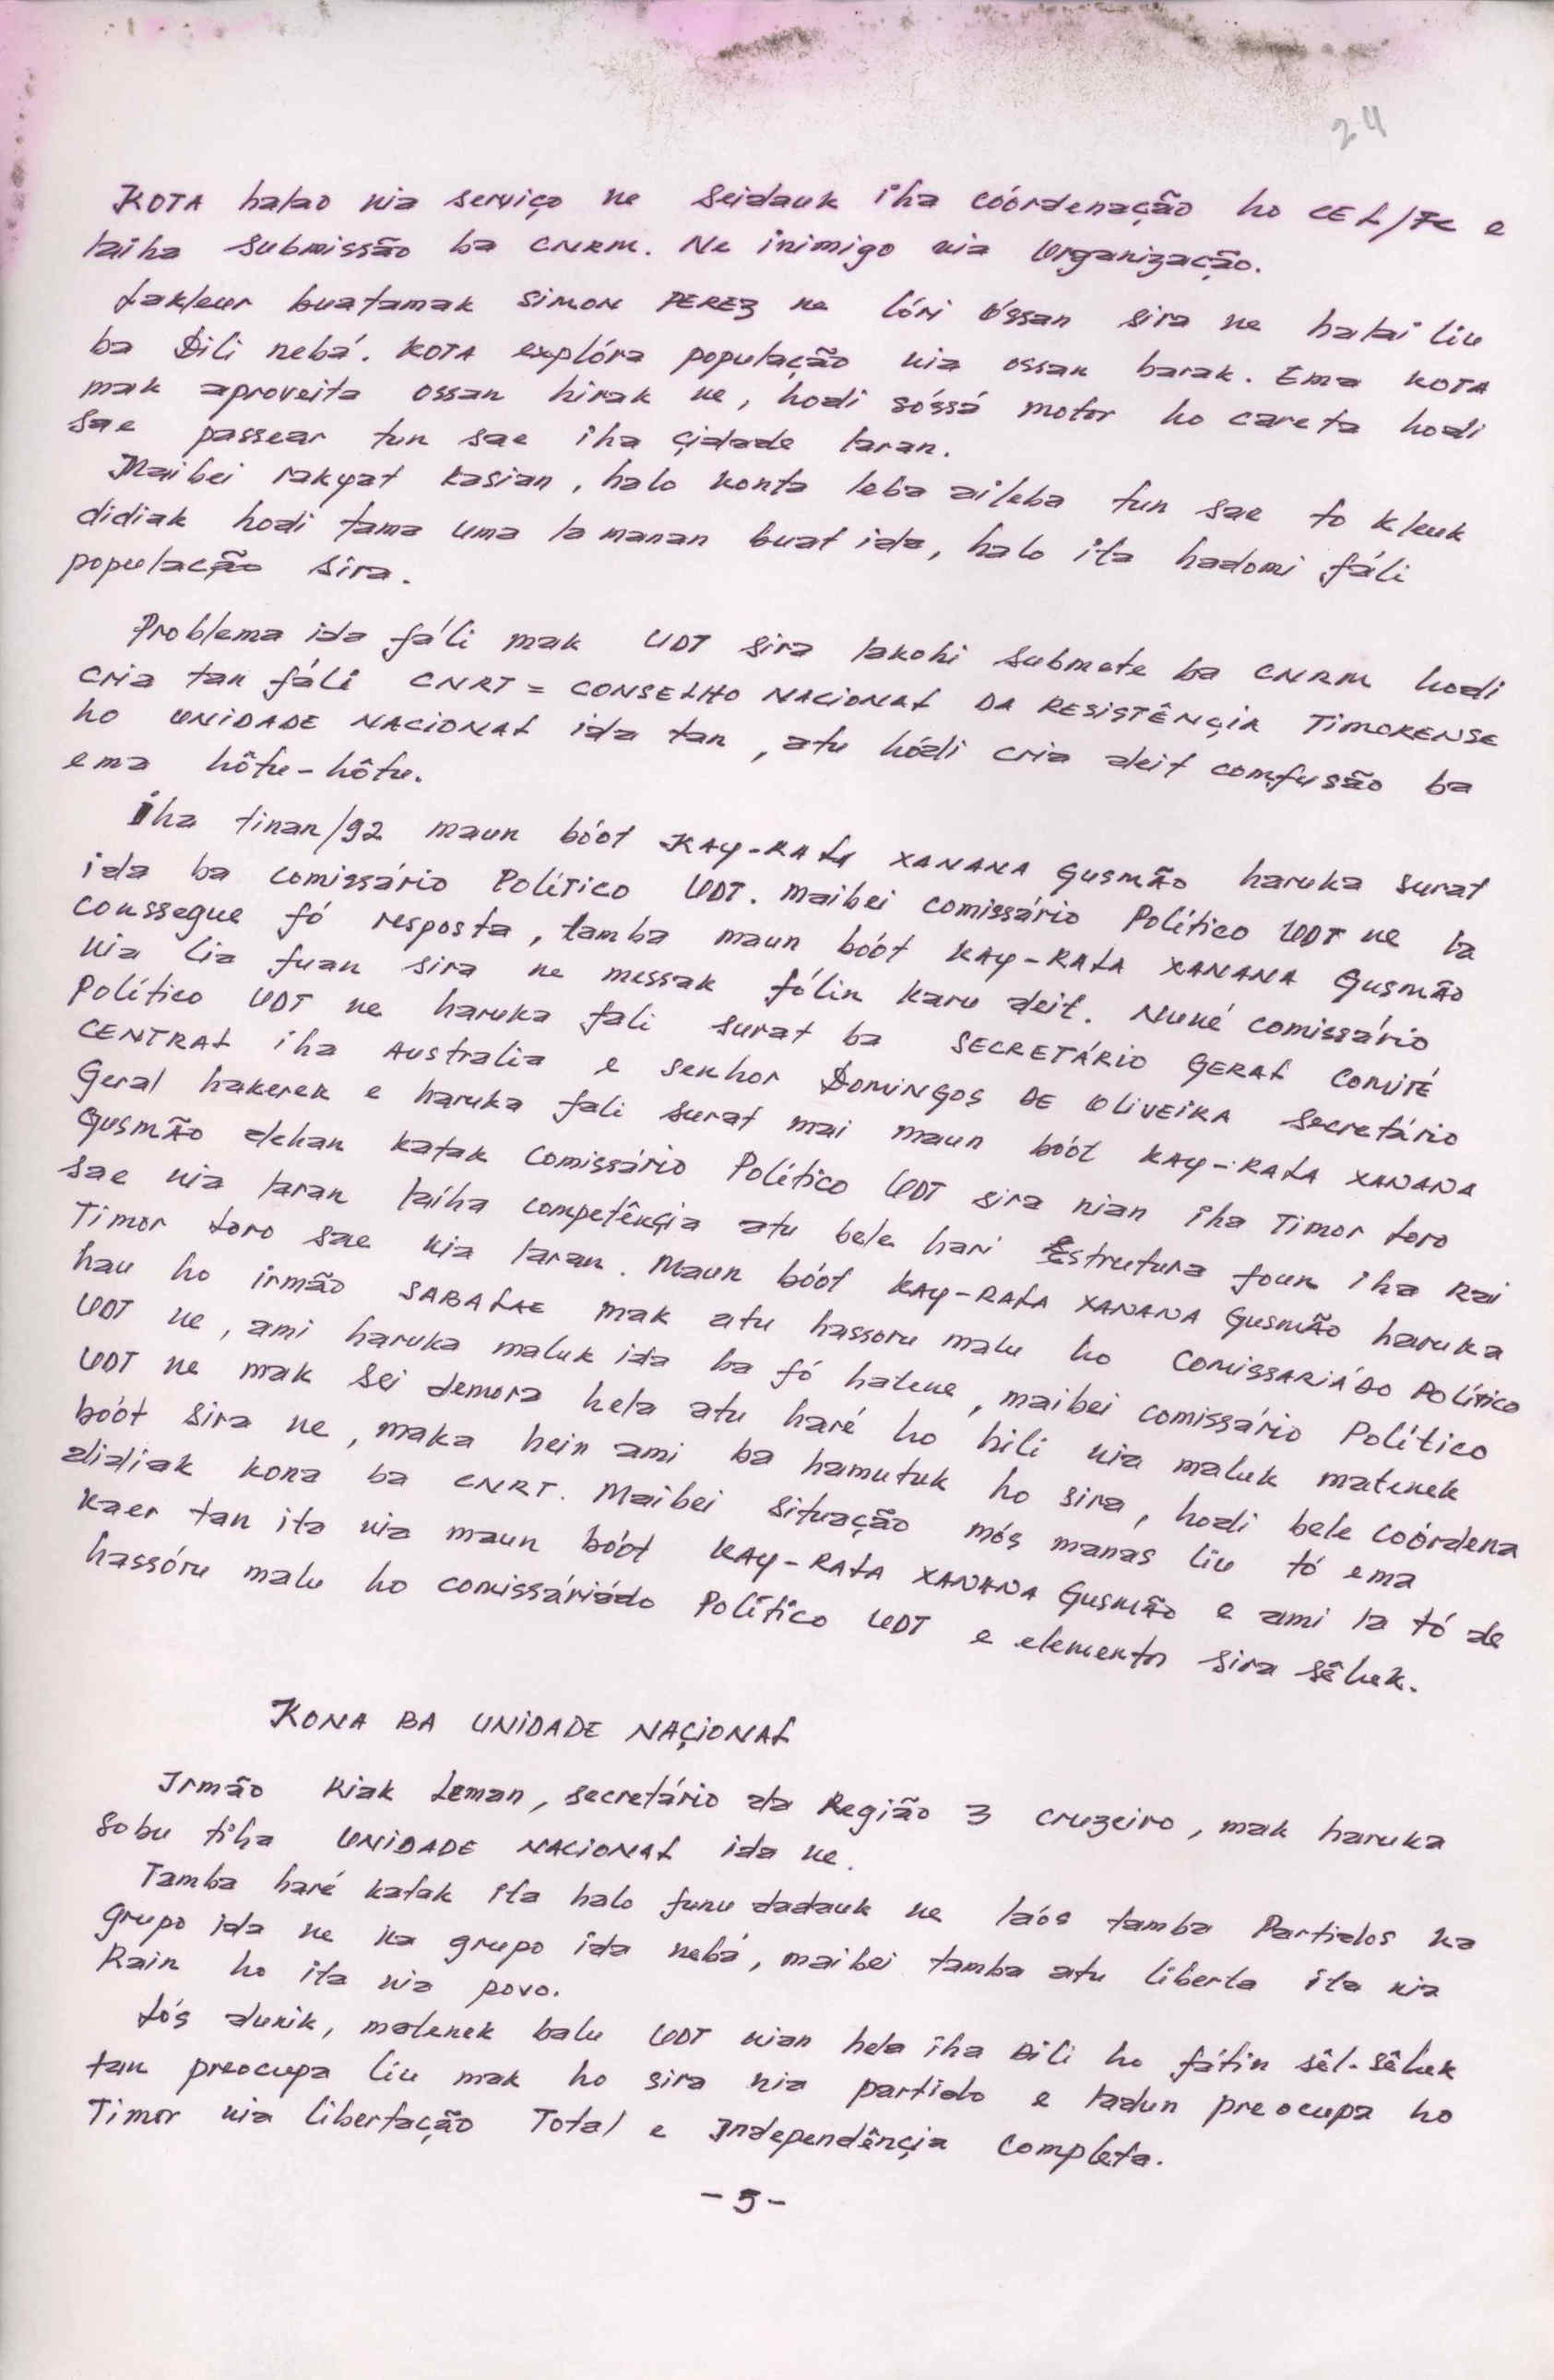 24
KOTA halao nia serviço ne seidauk iha coórdenação ho CEL/FC e
laiha submissão ba CNRM. Ne inimigo nia Organização.
Lakleur buatamak SIMON PEREZ ne lóri óssan sira ne halai liu
ba Dili nebá. KOTA explóra população nia ossan barak. Ema KOTA
mak aproveita ossan hirak ne, hodi sóssá motor ho careta hodi
sae passear tun sae iha çidade laran.
Maibei rakyat kasian, halo konta leba aileba tun sae to kleuk
didiak hodi tama uma la manan buat ida, halo ita hadomi fáli
população sira.
Problema ida fáli mak UDT sira lakohi submete ba CNRM hodi
cria tan fáli CNRT = CONSELHO NACIONAL DA RESISTÊNÇIA TIMORENSE
ho UNIDADE NACIONAL ida tan, atu hódi cria deit comfusão ba
ema hôtu-hôtu.
Iha tinan/92 maun bóot KAY-RALA XANANA GUSMÃO haruka surat
ida ba comissário Político UDT. Maibei comissário Político UDT ne la
conssegue fó resposta, tamba maun bóot KAY-RALA XANANA GUSMÃO
nia lia fuan sira ne messak fólin karu deit. Nuné comissário
Político UDT ne haruka fali surat ba SECRETÁRIO GERAL COMITÉ
CENTRAL iha AUStralia e senhor DOMINGOS DE OLIVEIRA secretário
Geral hakerek e haruka fali surat mai maun bóot KAY-RALA XANANA
GUSMÃO dehan katak comissário Político UDT sira nian iha Timor Loro
sae nia laran laíha competênçia atu bele hari Estrutura foun iha Rai
Timor Loro sae nia laran. Maun bóot KAY-RALA XANANA GUSMÃO haruka
hau ho irmão SABALAE mak atu hassoru malu ho COMISSARIÁDO POLÍTICO
UDT ne, ami haruka maluk ida ba fó hatene, maibei comissário Político
UDT ne mak sei demora hela atu haré ho hili nia maluk matenek
bóót sira ne, maka hein ami ba hamutuk ho sira, hodi bele coórdena
didiak kona ba CNRT. Maibei situação mós manas liu tó ema
kaer tan ita nia maun bóót KAY-RALA XANANA GUSMÃO e ami la tó de
hassóru malu ho comissáriádo Político UDT e elementos sira sêluk.
KONA BA UNIDADE NAÇIONAL
Irmão Riak Leman, secretário da Região 3 cruzeiro, mak haruka
sobu tiha UNIDADE NACIONAL ida ne.
Tamba haré katak ita halo funu dadauk ne laós tamba Partidos ka
grupo ida ne ka grupo ida nebá, maibei tamba atu liberta ita nia
Rain ho ita nia povo.
Lós dunik, matenek balu UDT nian hela iha Dili ho fátin sêl-sêluk
tan preocupa liu mak ho sira nia partido e ladun preocupa ho
Timor nia libertação Total e Independênçia completa.
- 5 -